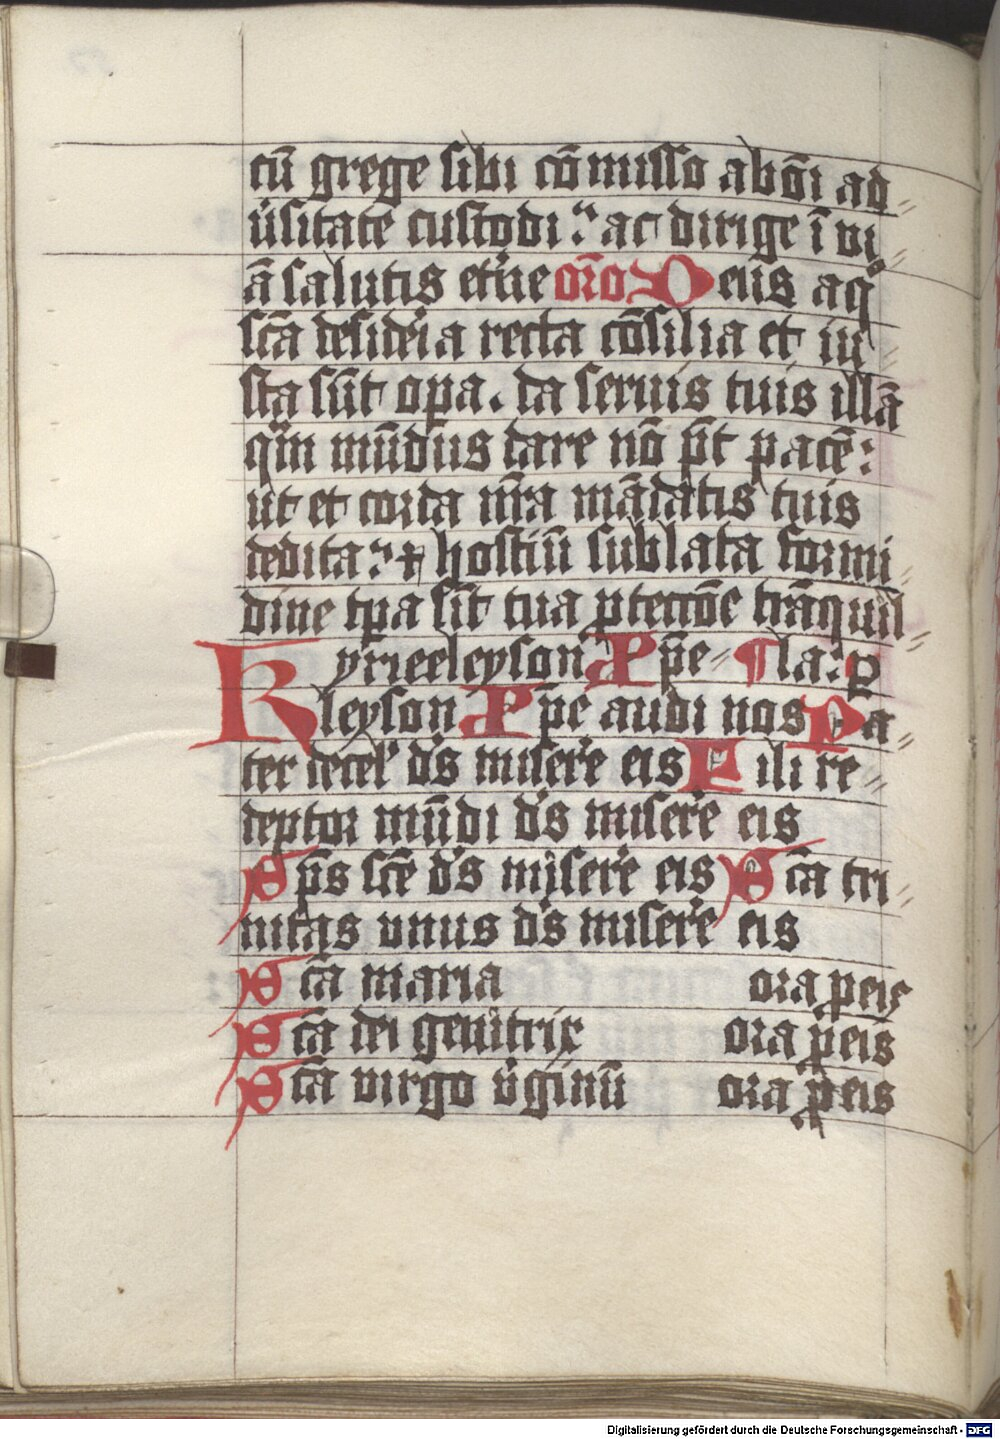 cū grege sibi cōmisso ab oi ad
űsitate custodi : ac dirige ī vi
ā salutis et űe orō Deus a q̊
scā desideria recta cōsilia et iu
sta sūt opa. da seruis tuis illā
qm mūdus dare nō pt pacē:
ut et corda nrā mādatis tuis
dedita : & hostiū sublata formi
dine tpa sīt tua ptectōe trāquil
Kyrieeleyson Xpe ¶ la: p
kleyson Xpe audi nos Pa
ter decel' ds misere eis Fili re
deptor mūdi ds misere eis
Sps scē ds misere eis Scā tri
nitas unus ds misere eis
Scā maria ora p eis
Scā dei genitrix ora p eis
Scā virgo űginū ora p eis
Digitalisierung gefördert durch die Deutsche Forschungsgemeinschaft - DFG